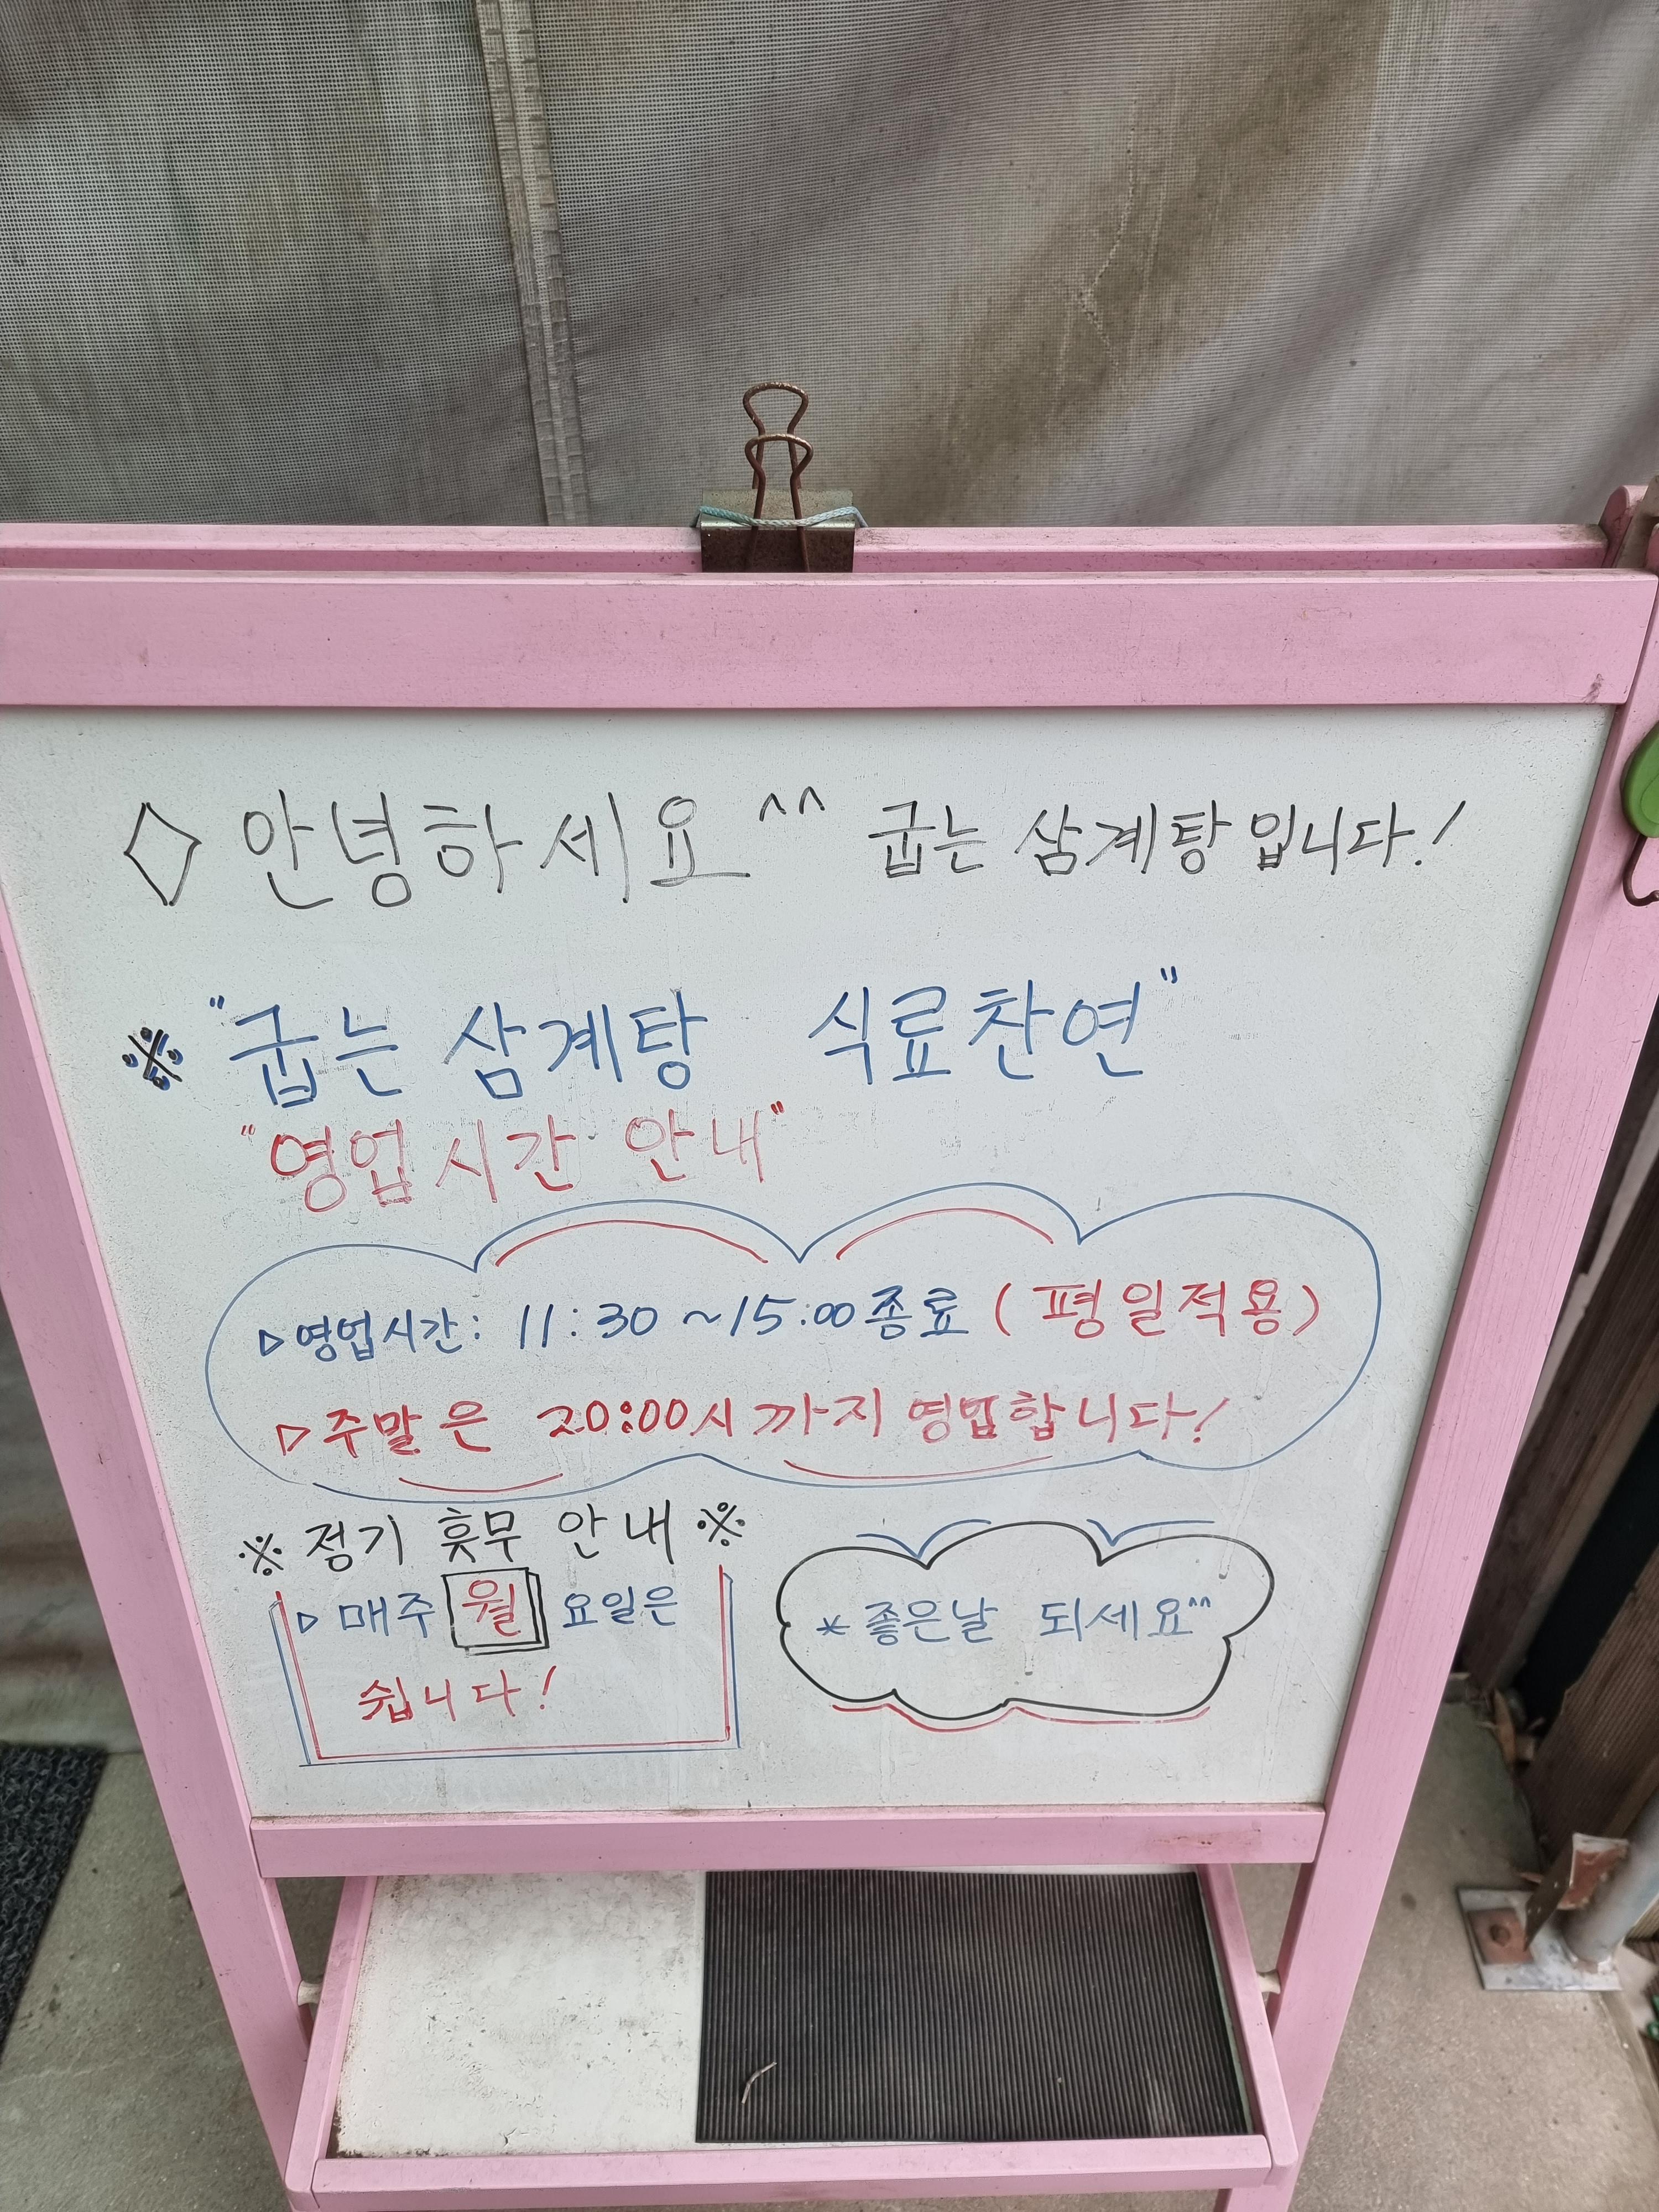 ◇ 안녕하세요^^ 굽는 삼계탕입니다!
※ "굽는 삼계탕 식료찬연"
"영업시간 안내"
▷영업시간: 11:30 ~15:00종료 (평일적용)
▷주말은 20:00시까지 영업합니다!
※ 정기 휴무 안내 ※
▷ 매주 월 요일은
쉽니다!
* 좋은날 되세요^^